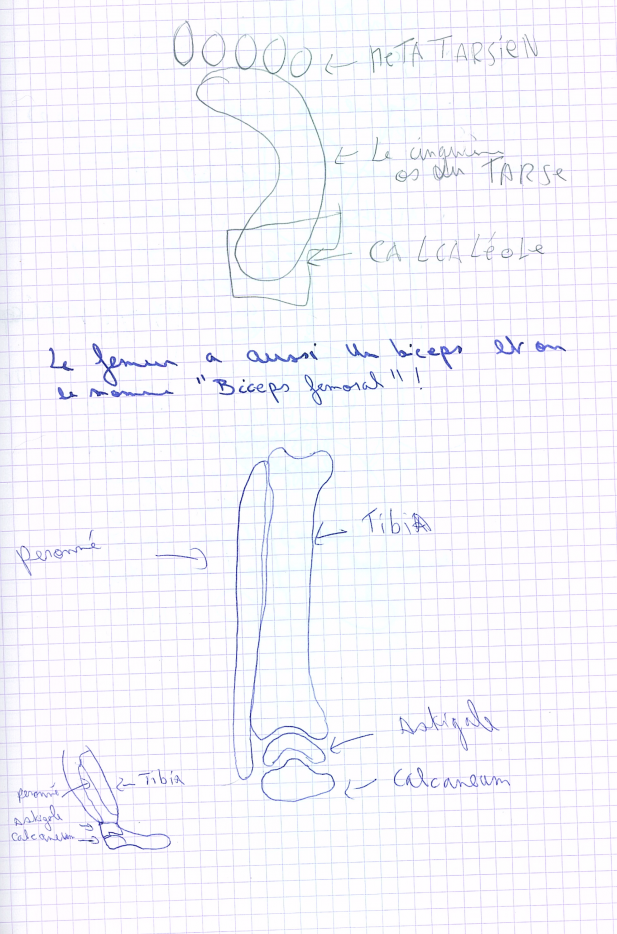 META TARSiEN
Le cinquièm
os du TARSE
CALCALéoLe
Le femur a aussi un biceps et on
le nomme "Biceps femoral"!
TibiA
peronné
Astigale
Calcaneum
Tibia
peronné
Astigale
Calcaneum